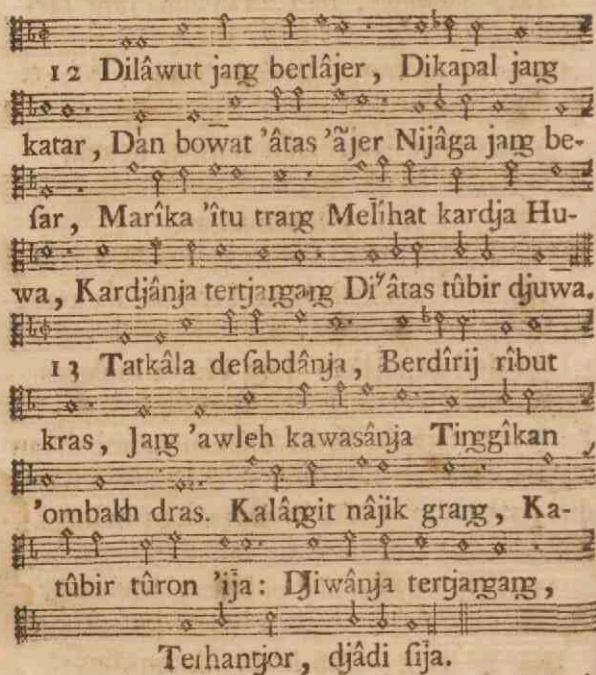 12 Dilâwut jaŋg berlâjer, Dikapal jaŋg
katar, Dan bowat 'âtas 'ājer Nijâga jaŋg be-
ſar, Marîka 'îtu traŋg Melihat kardja Hu-
wa, Kardjânja tertjaŋgaŋg Di'âtas tûbir djuwa.
13 Tatkâla deſabdânja, Berdîrij rîbut
kras, Jaŋg 'awleh kawasânja Tiŋgîkan
'ombakh dras. Kalâŋgit nâjik graŋg, Ka-
tûbir tûron 'ija: Djiwânja tertjaŋgaŋg,
Terhantjor, djâdi ſija.